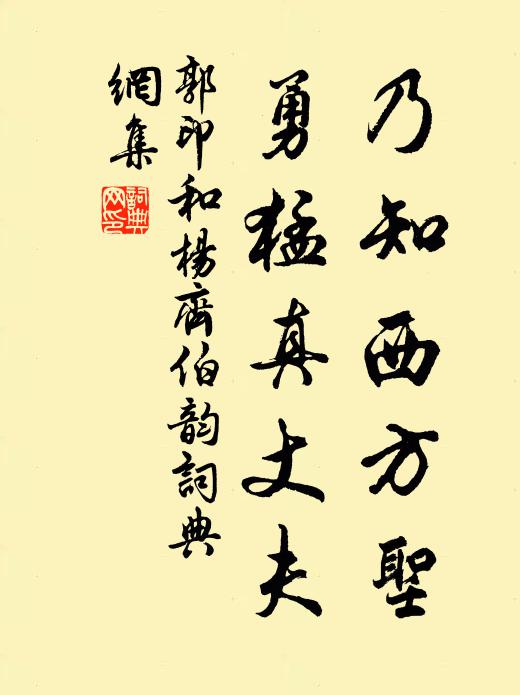 乃知西方聖
勇猛真丈夫
郭印和楊齊伯韵詞典
網集
詞典網印